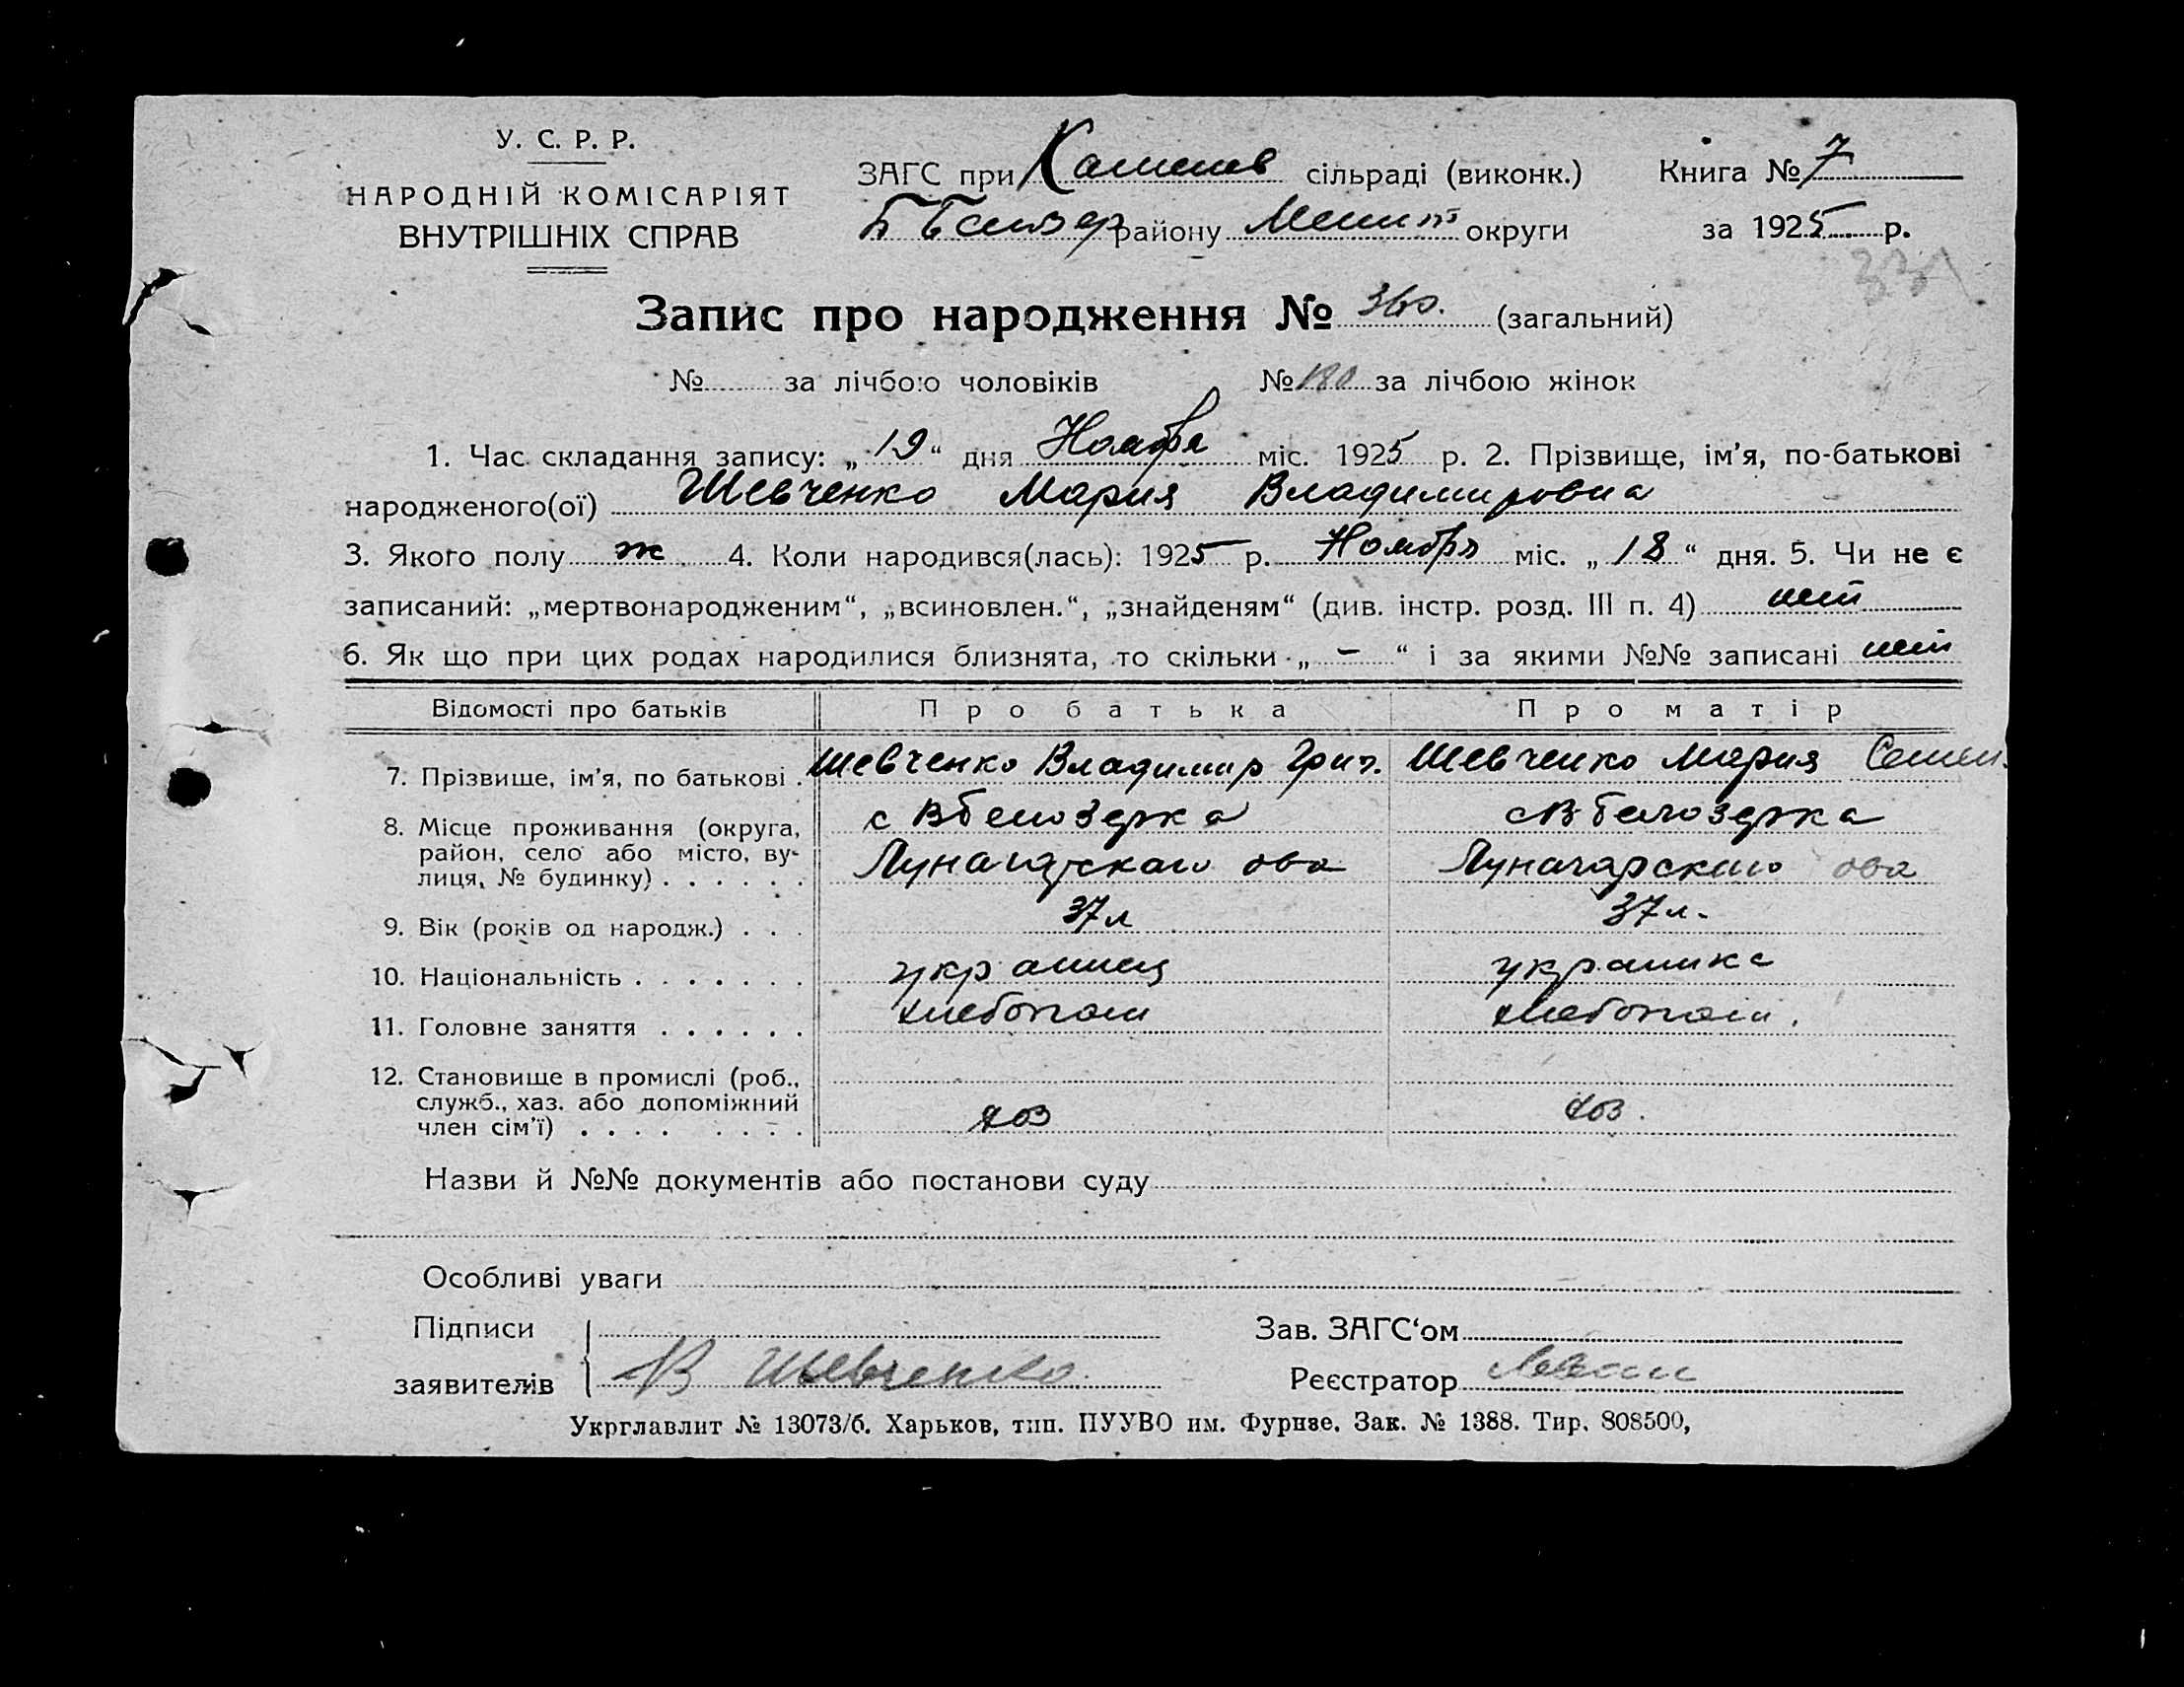 У. С. Р. Р.
НАРОДНІЙ КОМІСАРІЯТ
ВНУТРІШНІХ СПРАВ
ЗАГС при сільраді (виконк.) Книга № 7
району Мелит округи за 1925 р.
331
Запис про народження № 360. (загальний)
№ за лічбою чоловіків № 180 за лічбою жінок
1. Час складання запису: „19“ дня Ноября міс. 1925 р. 2. Прізвище, ім'я, по-батькові
народженого(ої) Шевченко Мария Владимировна
3. Якого полу ж 4. Коли народився(лась): 1925 р. Ноября міс. „18“ дня. 5. Чи не є
записаний: „мертвонародженим“, „всиновлен.“, „знайденям“ (див. інстр. розд. III п. 4) нет
6. Як що при цих родах народилися близнята, то скільки „ – “ і за якими №№ записані нет
Відомості про батьків Про батька Про матір
7. Прізвище, ім'я, по батькові . Шевченко Владимир Григ. Шевченко Мария Семен.
8. Місце проживання (округа, с ВБелозерка с ВБелозерка
район, село або місто, ву- Луначарскаго ова Луначарскаго ова
лиця, № будинку) . . . . . .
9. Вік (років од народж.) . . . 37 л 37 л.
10. Національність . . . . . . . украинец украинка
11. Головне заняття . . . . . . хлебопаш хлебопаш.
12. Становище в промислі (роб.,
служб., хаз. або допоміжний хоз хоз.
член сім'ї) . . . . . . . .
Назви й №№ документів або постанови суду
Особливі уваги
Підписи Зав. ЗАГС‘ом
заявителів В Шевченко Реєстратор
Укрглавлит № 13073/б. Харьков, тип. ПУУВО им. Фурнзе. Зак. № 1388. Тир. 808500,